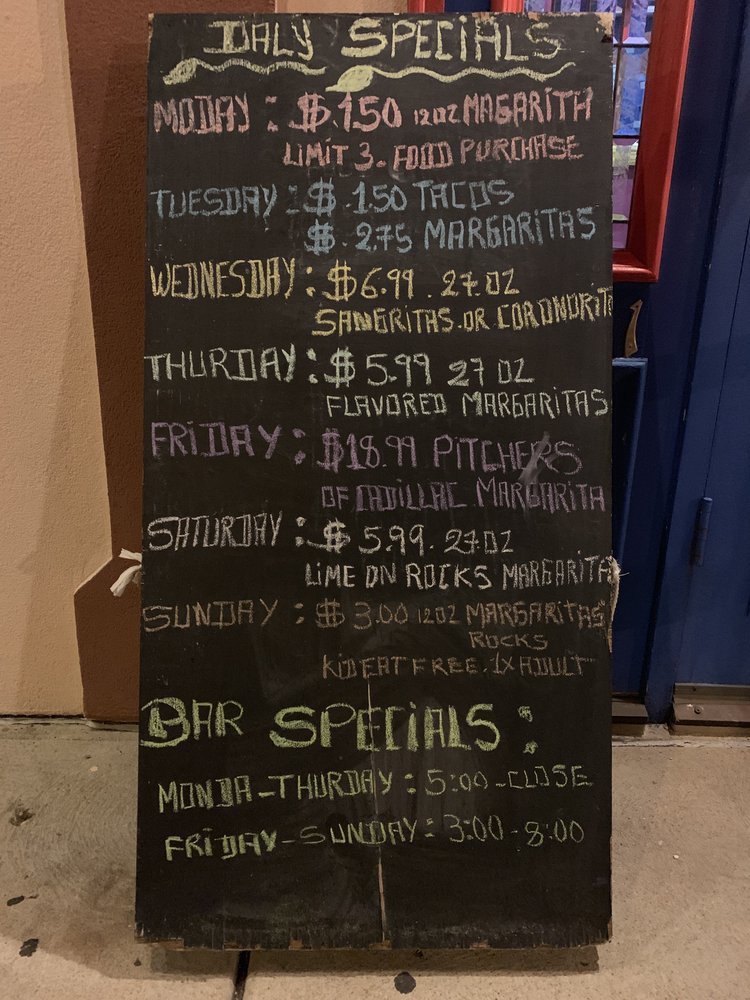 DALY SPECIALS
MODAY: $.1.50 12OZ MAGARITH
LIMIT 3. FOOD PURCHASE
TUESDAY: $ .1.50 TACOS
$ . 2.75 MARGARITAS
WEDNESDAY: $6.99 . 27 OZ
SANGRITAS.OR CORONORIT
THURDAY: $ 5.99 27 OZ
FLAVORED MARGARITAS
FRIDAY: $18.99 PITCHERS
OF CADILLAC MARGARITA
SATURDAY: $ 5.99. 27OZ
LIME ON ROCKS MARGARITA
SUNDAY: $ 3.00 12OZ MARGARITAS
ROCKS
KID EAT FREE. 1X ADULT
BAR SPECIALS:
MONDA-THURDAY: 5:00-CLOSE
FRIDAY-SUNDAY: 3:00-8:00